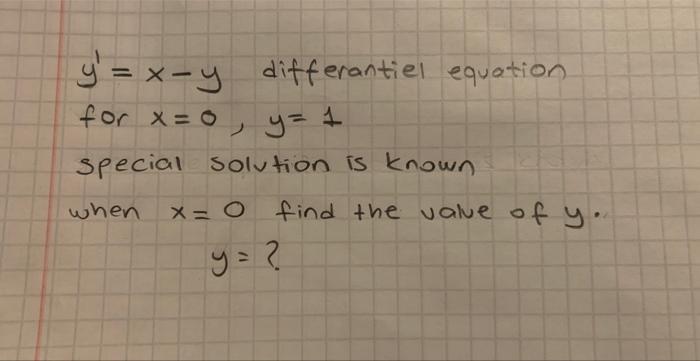 y' = x - y differantiel equation
for x = 0, y = 1
special solution is known
when x = 0 find the value of y.
y = ?